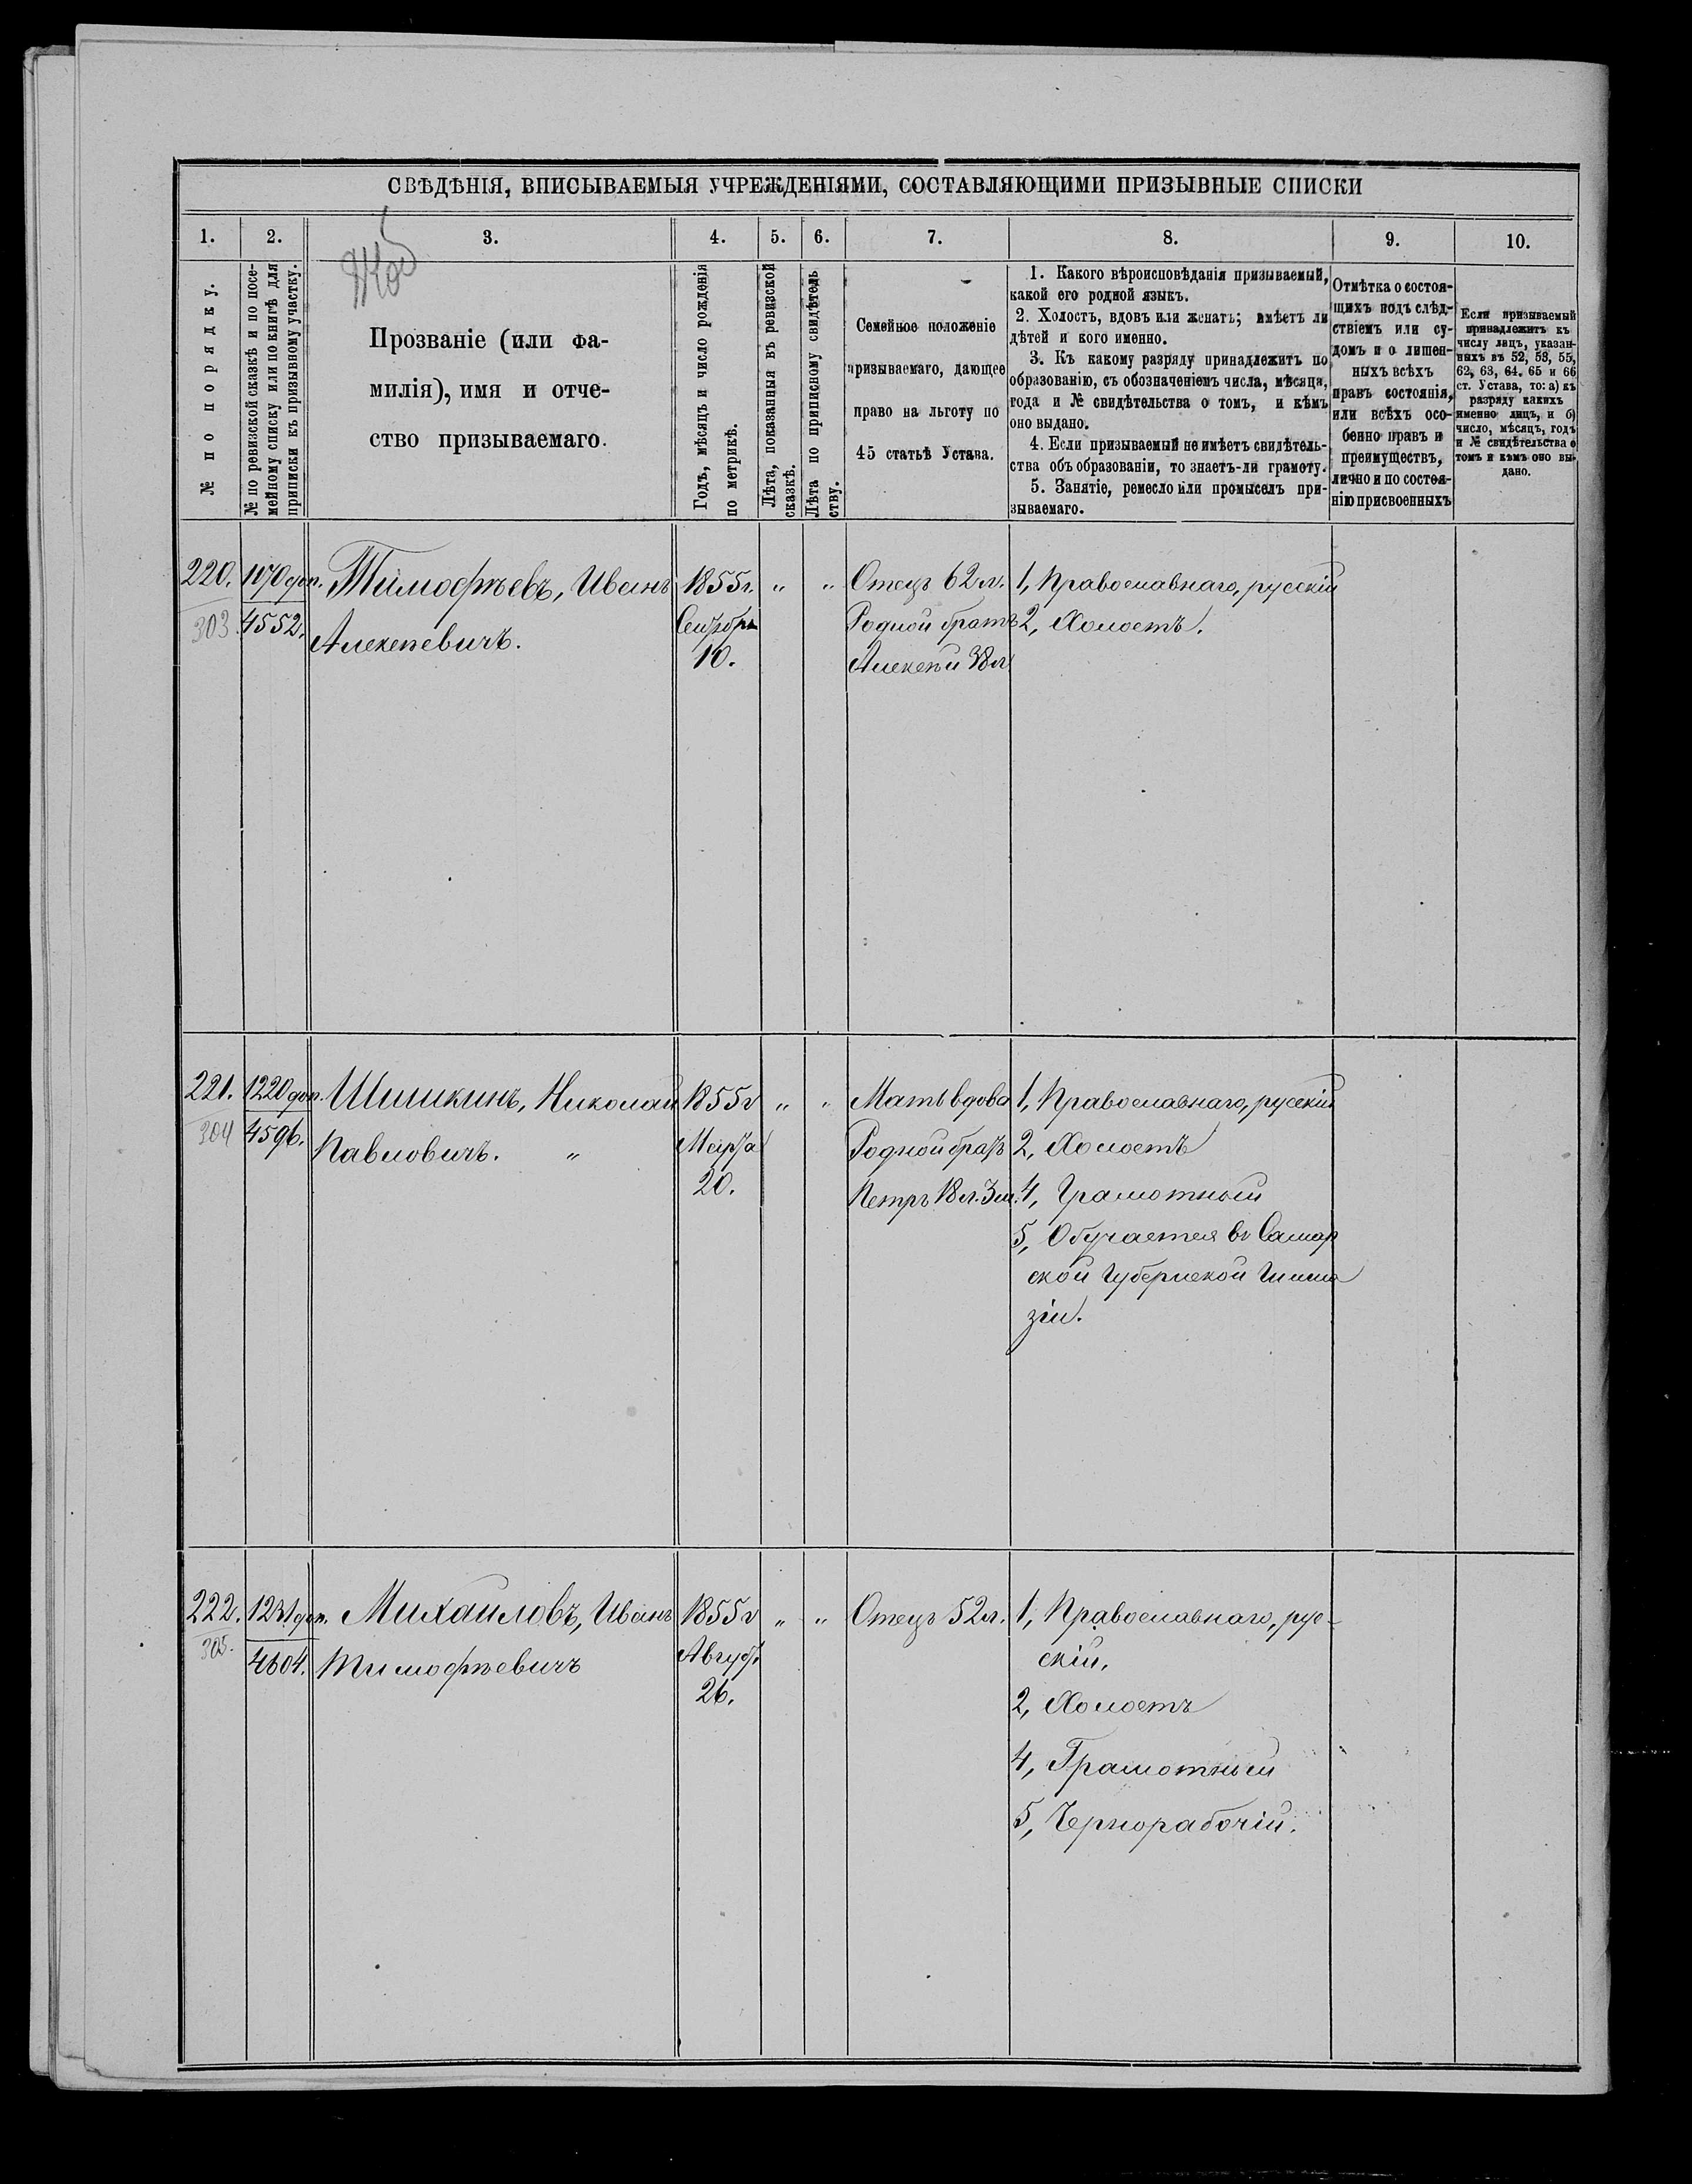 СВѢДѢНІЯ, ВПИСЫВАЕМЫЯ УЧРЕЖДЕНІЯМИ, СОСТАВЛЯЮЩИМИ ПРИЗЫВНЫЕ СПИСКИ
1. 2. 3. 4. 5. 6. 7. 8. 9. 10.
№ по порядку.
№ по ревизской сказкѣ и по посе-
мейному списку или по книгѣ для
приписки къ призывному участку.
Прозваніе (или фа-
милія), имя и отче-
ство призываемаго.
Годъ, мѣсяцъ и число рожденія
по метрикѣ.
Лѣта, показанныя въ ревизской
сказкѣ.
Лѣта по приписному свидѣтель
ству.
Семейное положеніе
призываемаго, дающее
право на льготу по
45 статьѣ Устава.
1. Какого вѣроисповѣданія призываемый,
какой его родной языкъ.
2. Холостъ, вдовъ или женатъ; имѣетъ ли
дѣтей и кого именно.
3. Къ какому разряду принадлежитъ по
образованію, съ обозначеніемъ числа, мѣсяца,
года и № свидѣтельства о томъ, и кѣмъ
оно выдано.
4. Если призываемый не имѣетъ свидѣтель-
ства объ образованіи, то знаетъ-ли грамоту.
5. Занятіе, ремесло или промыселъ при-
зываемаго.
Отмѣтка о состоя-
щихъ подъ слѣд-
ствіемъ или су-
домъ и о лишен-
ныхъ всѣхъ
правъ состоянія,
или всѣхъ осо-
бенно правъ и
преимуществъ,
лично и по состоя-
нію присвоенныхъ
Если призываемый
принадлежитъ къ
числу лицъ, указан-
ныхъ въ 52, 53, 55,
62, 63, 64, 65 и 66
ст. Устава, то: а) къ
разряду какихъ
именно лицъ, и б)
число, мѣсяцъ, годъ
и № свидѣтельства о
томъ и кѣмъ оно вы-
дано.
220.
303.
1070 доп.
4552.
Тимофѣевъ, Иванъ
Алексѣевичъ.
1855г.
Сентября
10.
" "
Отецъ 62 л.
Родной братъ
Алексѣй 38 л
1, Православнаго, русскій
2, Холостъ.
221.
304
1220 доп.
4596.
Шишкинъ, Николай
Павловичъ. "
1855г
Марта
20.
" "
Мать вдова
Родной братъ
Петръ 18 л. 3 м.
1, Православнаго, русскій
2, Холостъ
4, Грамотный
5, Обучается въ Самар
ской Губернской Гимна
зіи.
222.
305.
1231 доп.
4604.
Михайловъ, Иванъ
Тимофѣевичъ
1855г
Август.
26.
" "
Отецъ 52 л.
1, Православнаго, рус-
скій,
2, Холостъ
4, Грамотный
5, Чернорабочій.